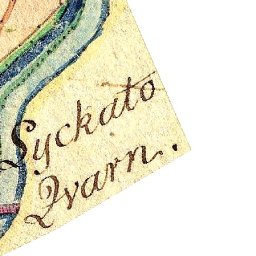 Lyckato
Qvarn.